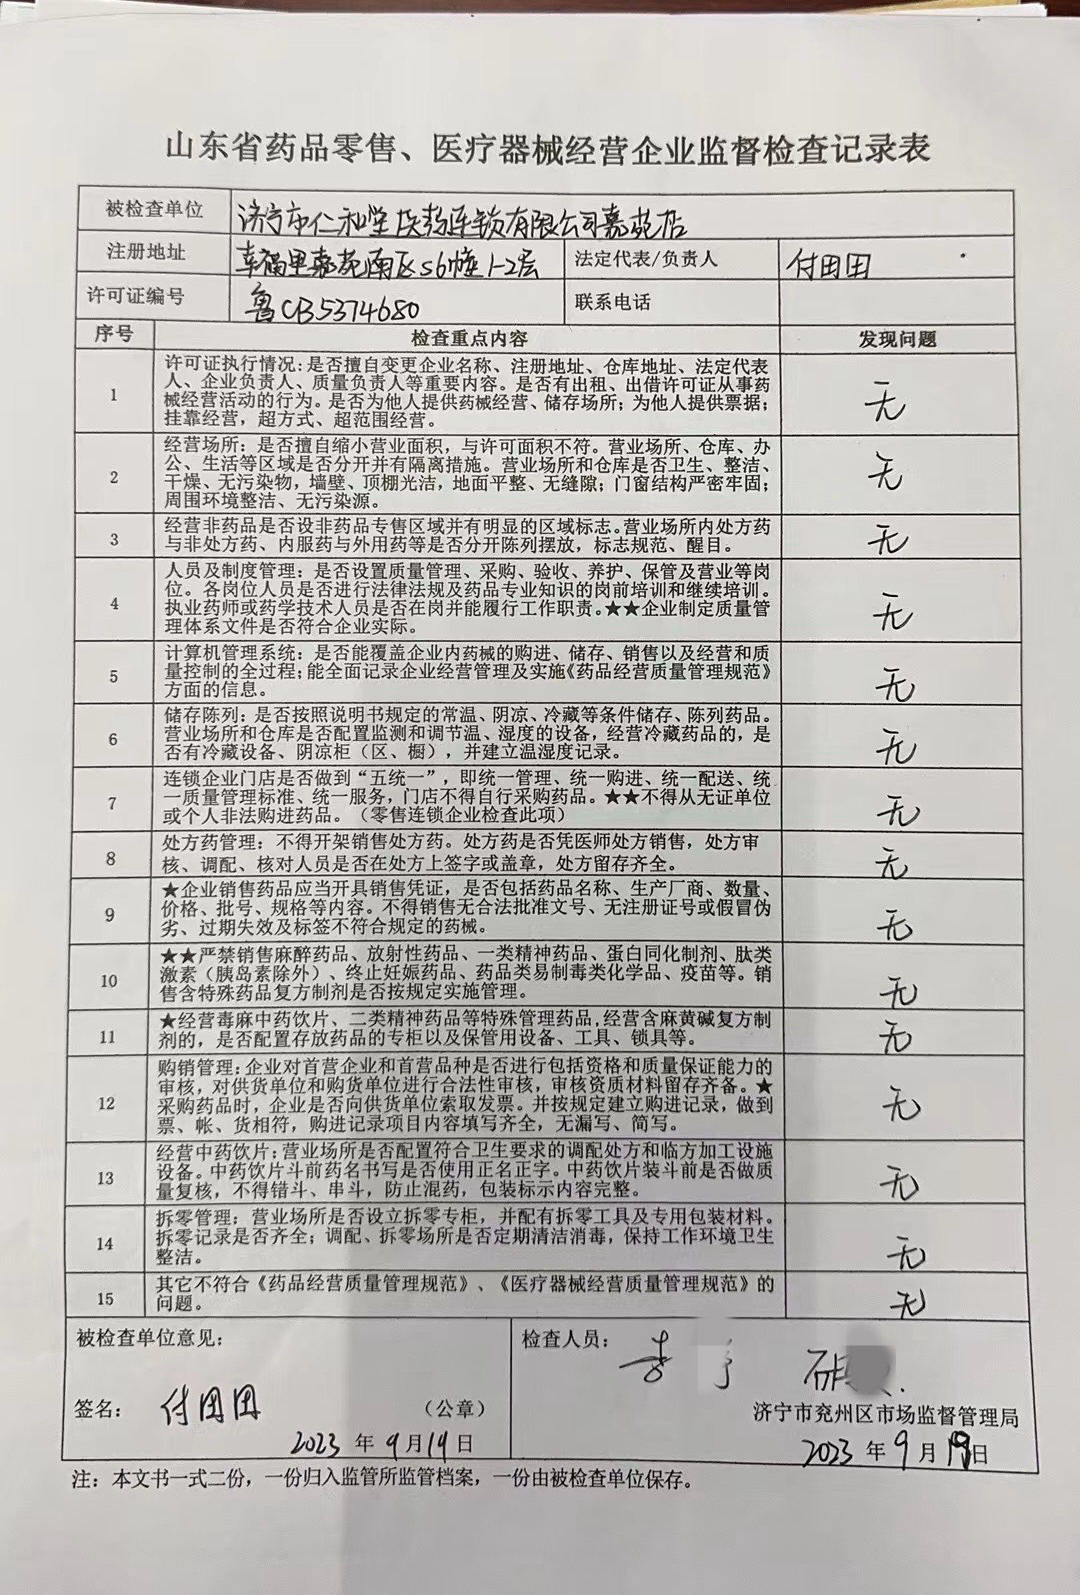 山东省药品零售、医疗器械经营企业监督检查记录表
被检查单位 济宁市仁和堂医药连锁有限公司嘉苑店
注册地址 幸福里嘉苑南区S6幢1-2层 法定代表/负责人 付团团
许可证编号 鲁CB5374680 联系电话
序号 检查重点内容 发现问题
许可证执行情况：是否擅自变更企业名称、注册地址、仓库地址、法定代表
人、企业负责人、质量负责人等重要内容。是否有出租、出借许可证从事药
1 械经营活动的行为。是否为他人提供药械经营、储存场所；为他人提供票据； 无
挂靠经营，超方式、超范围经营。
经营场所：是否擅自缩小营业面积，与许可面积不符。营业场所、仓库、办
公、生活等区域是否分开并有隔离措施。营业场所和仓库是否卫生、整洁、
2 干燥、无污染物，墙壁、顶棚光洁，地面平整、无缝隙；门窗结构严密牢固； 无
周围环境整洁、无污染源。
经营非药品是否设非药品专售区域并有明显的区域标志。营业场所内处方药
3 与非处方药、内服药与外用药等是否分开陈列摆放，标志规范、醒目。 无
人员及制度管理：是否设置质量管理、采购、验收、养护、保管及营业等岗
位。各岗位人员是否进行法律法规及药品专业知识的岗前培训和继续培训。
4 执业药师或药学技术人员是否在岗并能履行工作职责。★★企业制定质量管 无
理体系文件是否符合企业实际。
计算机管理系统：是否能覆盖企业内药械的购进、储存、销售以及经营和质
5 量控制的全过程；能全面记录企业经营管理及实施《药品经营质量管理规范》 无
方面的信息。
储存陈列：是否按照说明书规定的常温、阴凉、冷藏等条件储存、陈列药品。
6 营业场所和仓库是否配置监测和调节温、湿度的设备，经营冷藏药品的，是 无
否有冷藏设备、阴凉柜（区、橱），并建立温湿度记录。
连锁企业门店是否做到“五统一”，即统一管理、统一购进、统一配送、统
7 一质量管理标准、统一服务，门店不得自行采购药品。★★不得从无证单位 无
或个人非法购进药品。（零售连锁企业检查此项）
处方药管理：不得开架销售处方药。处方药是否凭医师处方销售，处方审
8 核、调配、核对人员是否在处方上签字或盖章，处方留存齐全。 无
★企业销售药品应当开具销售凭证，是否包括药品名称、生产厂商、数量、
9 价格、批号、规格等内容。不得销售无合法批准文号、无注册证号或假冒伪 无
劣、过期失效及标签不符合规定的药械。
★★严禁销售麻醉药品、放射性药品、一类精神药品、蛋白同化制剂、肽类
10 激素（胰岛素除外）、终止妊娠药品、药品类易制毒类化学品、疫苗等。销 无
售含特殊药品复方制剂是否按规定实施管理。
★经营毒麻中药饮片、二类精神药品等特殊管理药品，经营含麻黄碱复方制
11 剂的，是否配置存放药品的专柜以及保管用设备、工具、锁具等。 无
购销管理：企业对首营企业和首营品种是否进行包括资格和质量保证能力的
审核，对供货单位和购货单位进行合法性审核，审核资质材料留存齐备。★
12 采购药品时，企业是否向供货单位索取发票。并按规定建立购进记录，做到 无
票、帐、货相符，购进记录项目内容填写齐全，无漏写、简写。
经营中药饮片：营业场所是否配置符合卫生要求的调配处方和临方加工设施
13 设备。中药饮片斗前药名书写是否使用正名正字。中药饮片装斗前是否做质 无
量复核，不得错斗、串斗，防止混药，包装标示内容完整。
拆零管理：营业场所是否设立拆零专柜，并配有拆零工具及专用包装材料。
14 拆零记录是否齐全；调配、拆零场所是否定期清洁消毒，保持工作环境卫生 无
整洁。
其它不符合《药品经营质量管理规范》、《医疗器械经营质量管理规范》的
15 问题。 无
被检查单位意见： 检查人员：
签名： 付团团 （公章） 济宁市兖州区市场监督管理局
2023 年 9 月 19 日 2023 年 9 月 19 日
注：本文书一式二份，一份归入监管所监管档案，一份由被检查单位保存。